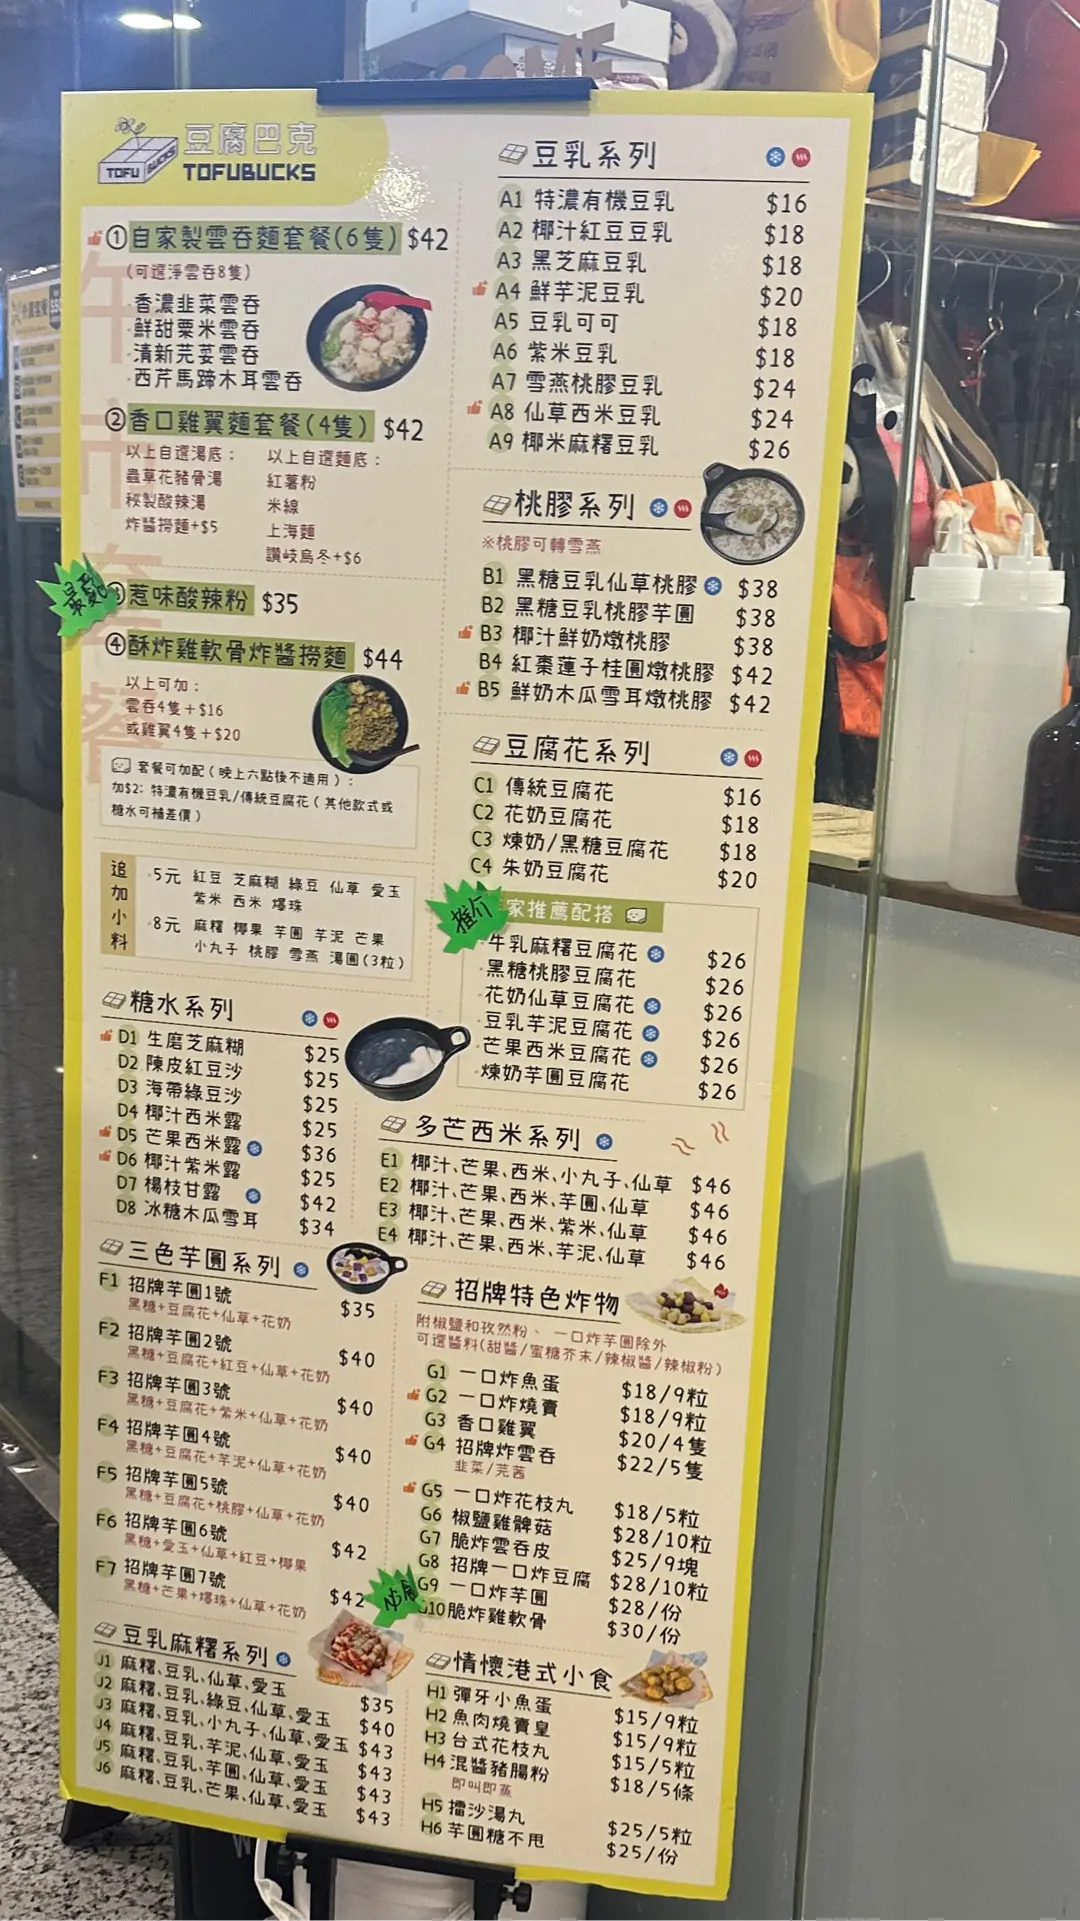 豆腐巴克
TOFU BUCKS
TOFUBUCKS
午市套餐
①自家製雲吞麵套餐(6隻) $42
(可選淨雲吞8隻)
·香濃韭菜雲吞
·鮮甜粟米雲吞
·清新芫荽雲吞
·西芹馬蹄木耳雲吞
②香口雞翼麵套餐(4隻) $42
以上自選湯底：
蟲草花豬骨湯
秘製酸辣湯
炸醬撈麵+$5
以上自選麵底：
紅薯粉
米線
上海麵
讚岐烏冬+$6
最愛
③惹味酸辣粉 $35
④酥炸雞軟骨炸醬撈麵 $44
以上可加：
雲吞4隻+$16
或雞翼4隻+$20
套餐可加配(晚上六點後不適用)：
加$2：特濃有機豆乳/傳統豆腐花(其他款式或
糖水可補差價)
追加小料
·5元 紅豆 芝麻糊 綠豆 仙草 愛玉
紫米 西米 爆珠
·8元 麻糬 椰果 芋圓 芋泥 芒果
小丸子 桃膠 雪燕 湯圓(3粒)
糖水系列
D1 生磨芝麻糊 $25
D2 陳皮紅豆沙 $25
D3 海帶綠豆沙 $25
D4 椰汁西米露 $25
D5 芒果西米露 $36
D6 椰汁紫米露 $25
D7 楊枝甘露 $42
D8 冰糖木瓜雪耳 $34
三色芋圓系列
F1 招牌芋圓1號 $35
黑糖+豆腐花+仙草+花奶
F2 招牌芋圓2號 $40
黑糖+豆腐花+紅豆+仙草+花奶
F3 招牌芋圓3號 $40
黑糖+豆腐花+紫米+仙草+花奶
F4 招牌芋圓4號 $40
黑糖+豆腐花+芋泥+仙草+花奶
F5 招牌芋圓5號 $40
黑糖+豆腐花+桃膠+仙草+花奶
F6 招牌芋圓6號 $42
黑糖+愛玉+仙草+紅豆+椰果
F7 招牌芋圓7號 $42
黑糖+芒果+爆珠+仙草+花奶
豆乳麻糬系列
J1 麻糬、豆乳、仙草、愛玉 $35
J2 麻糬、豆乳、綠豆、仙草、愛玉 $40
J3 麻糬、豆乳、小丸子、仙草、愛玉 $43
J4 麻糬、豆乳、芋泥、仙草、愛玉 $43
J5 麻糬、豆乳、芋圓、仙草、愛玉 $43
J6 麻糬、豆乳、芒果、仙草、愛玉 $43
豆乳系列
A1 特濃有機豆乳 $16
A2 椰汁紅豆豆乳 $18
A3 黑芝麻豆乳 $18
A4 鮮芋泥豆乳 $20
A5 豆乳可可 $18
A6 紫米豆乳 $18
A7 雪燕桃膠豆乳 $24
A8 仙草西米豆乳 $24
A9 椰米麻糬豆乳 $26
桃膠系列
※桃膠可轉雪燕
B1 黑糖豆乳仙草桃膠 $38
B2 黑糖豆乳桃膠芋圓 $38
B3 椰汁鮮奶燉桃膠 $38
B4 紅棗蓮子桂圓燉桃膠 $42
B5 鮮奶木瓜雪耳燉桃膠 $42
豆腐花系列
C1 傳統豆腐花 $16
C2 花奶豆腐花 $18
C3 煉奶/黑糖豆腐花 $18
C4 朱奶豆腐花 $20
推介
家推薦配搭
·牛乳麻糬豆腐花 $26
·黑糖桃膠豆腐花 $26
·花奶仙草豆腐花 $26
·豆乳芋泥豆腐花 $26
·芒果西米豆腐花 $26
·煉奶芋圓豆腐花 $26
多芒西米系列
E1 椰汁、芒果、西米、小丸子、仙草 $46
E2 椰汁、芒果、西米、芋圓、仙草 $46
E3 椰汁、芒果、西米、紫米、仙草 $46
E4 椰汁、芒果、西米、芋泥、仙草 $46
招牌特色炸物
附椒鹽和孜然粉、一口炸芋圓除外
可選醬料(甜醬/蜜糖芥末/辣椒醬/辣椒粉)
G1 一口炸魚蛋 $18/9粒
G2 一口炸燒賣 $18/9粒
G3 香口雞翼 $20/4隻
G4 招牌炸雲吞 $22/5隻
韭菜/芫茜
G5 一口炸花枝丸 $18/5粒
G6 椒鹽雞髀菇 $28/10粒
G7 脆炸雲吞皮 $25/9塊
G8 招牌一口炸豆腐 $28/10粒
G9 一口炸芋圓 $28/份
G10 脆炸雞軟骨 $30/份
情懷港式小食
H1 彈牙小魚蛋 $15/9粒
H2 魚肉燒賣皇 $15/9粒
H3 台式花枝丸 $15/5粒
H4 混醬豬腸粉 $18/5條
即叫即蒸
H5 擂沙湯丸 $25/5粒
H6 芋圓糖不甩 $25/份